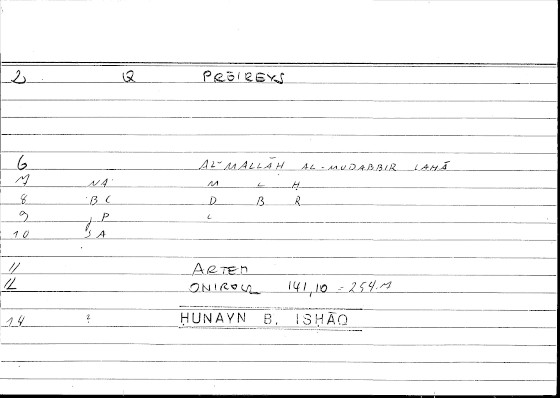 2 12 PRŌIREYS
6 AL-MALLĀḤ AL-MUDABBIR LAHĀ
7 NA M L H
8 BC D B R
9 P L
10 A
11 ARTEM
12 ONIROCR 141,10 = 254.7
14 ? ḤUNAYN B. ISḤĀQ